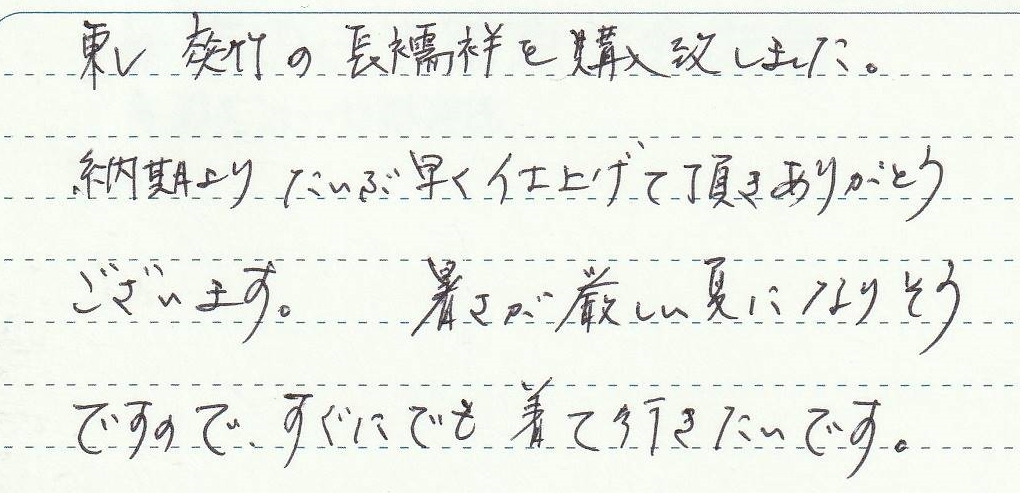 東レ 爽竹の長襦袢を購入致しました。
納期よりだいぶ早く仕上げて頂きありがとう
ございます。 暑さが厳しい夏になりそう
ですので、すぐにでも着て行きたいです。